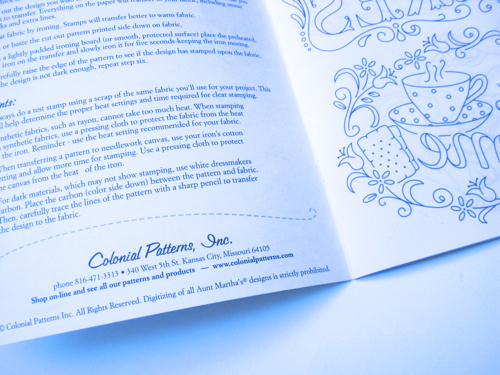 out the design you
to transfer. Everything on the paper will transfer to your fabric, including
ks and extra lines.
at fabric by ironing. Stamps will transfer better to warm fabric.
or baste the cut out pattern printed side down on fabric.
a lightly padded ironing board (or smooth, protected surface) place the preheated,
iron on the transfer and slowly iron it for five seconds-keeping the iron moving.
refully raise the edge of the pattern to see if the design has stamped upon the fabric.
he design is not dark enough, repeat step six.
nts:
ways do a test stamp using a scrap of the same fabric you'll use for your project. This
l help determine the proper heat settings and time required for clear stamping.
nthetic fabrics, such as rayon, cannot take too much heat. When stamping
synthetic fabrics, use a pressing cloth to protect the fabric from the heat
the iron. Reminder - use the heat setting recommended for your fabric.
When transferring a pattern to needlework canvas, use your iron's cotton
etting and allow more time for stamping. Use a pressing cloth to protect
he canvas from the heat of the iron.
For dark materials, which may not show stamping, use white dressmakers
carbon. Place the carbon (color side down) between the pattern and fabric.
Then, carefully trace the lines of the pattern with a sharp pencil to transfer
the design to the fabric.
Colonial Patterns, Inc.
phone 816-471-3313 • 340 West 5th St. Kansas City, Missouri 64105
Shop on-line and see all our patterns and products — www.colonialpatterns.com
© Colonial Patterns Inc. All Rights Reserved. Digitizing of all Aunt Martha's® designs is strictly prohibited.